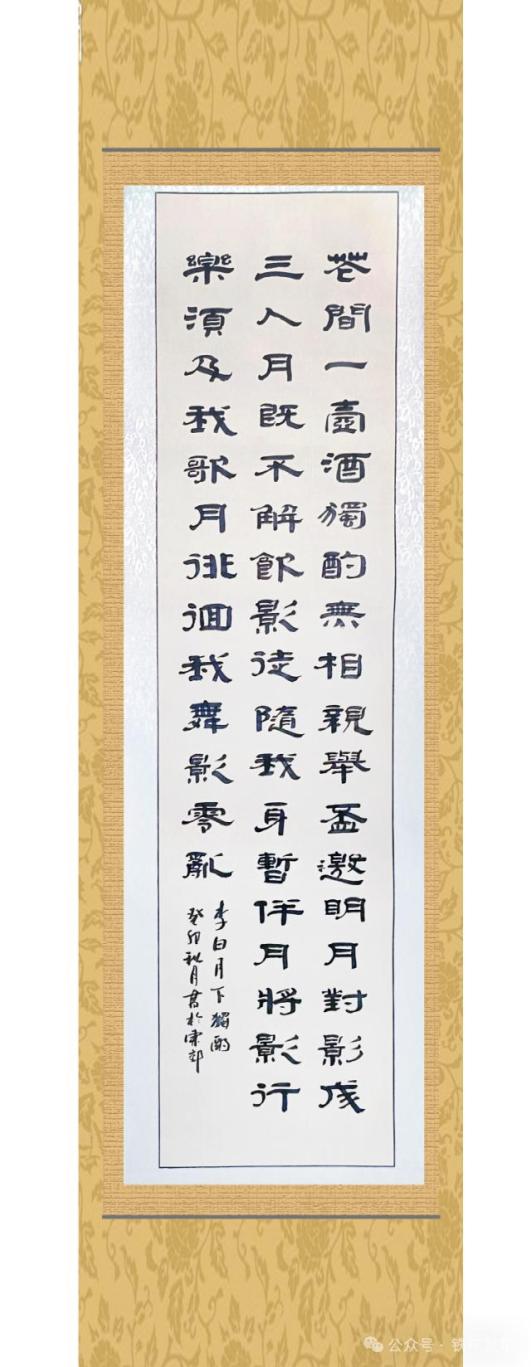 花間一壺酒獨酌無相親舉盃邀明月對影成
三人月既不解飲影徒隨我身暫伴月將影行
樂須及我歌月徘徊我舞影零亂
李白月下獨酌
癸卯秋月書於
公众号 · 铁